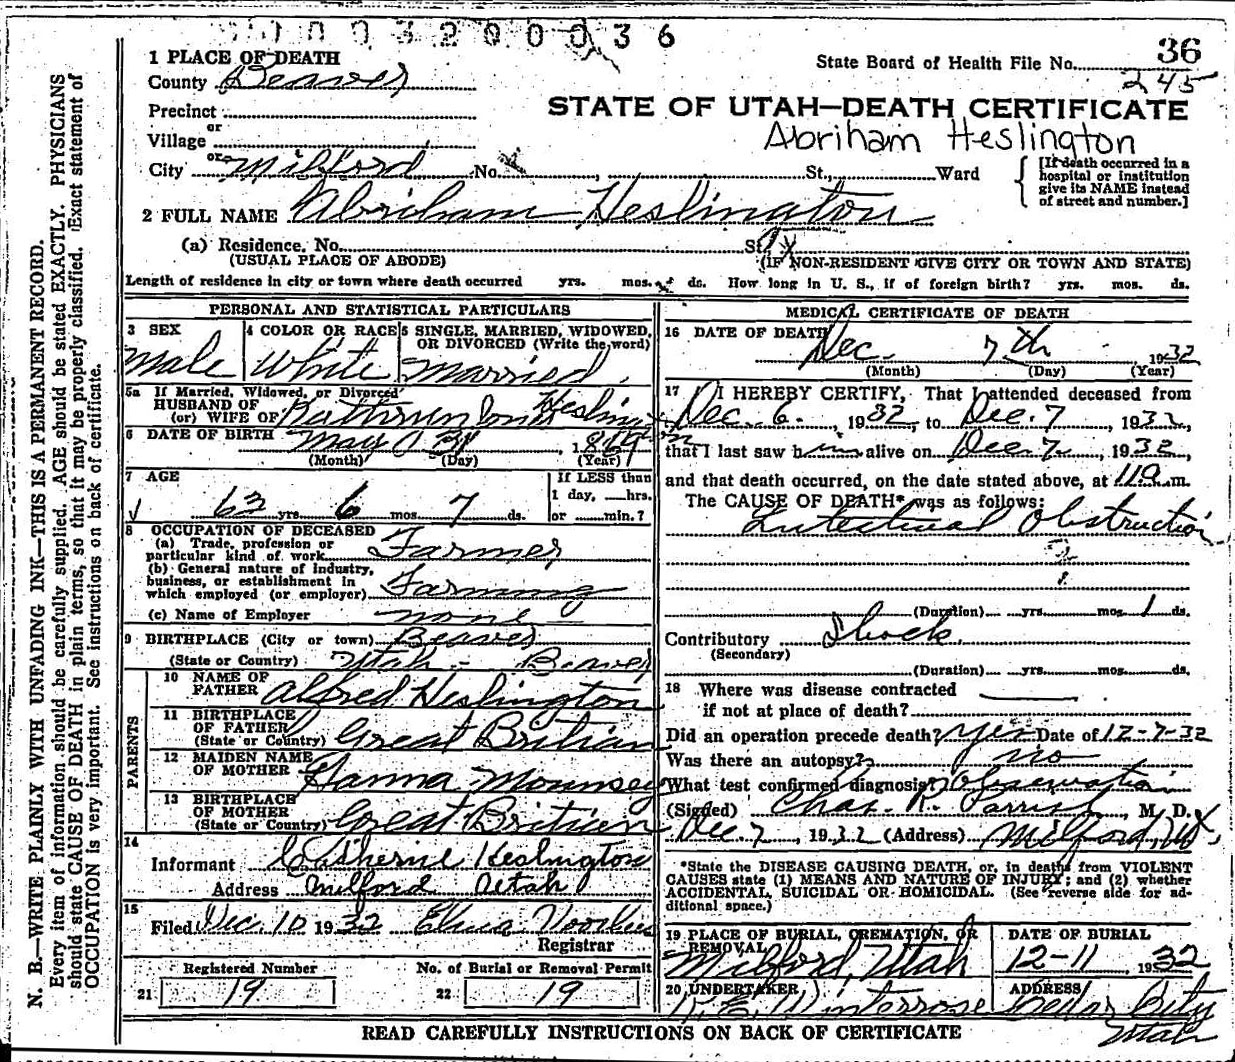 1 0 0 3 2 0 0 0 3 6
36
1 PLACE OF DEATH
State Board of Health File No.
245
County Beaver
STATE OF UTAH—DEATH CERTIFICATE
Precinct
or
Village
Abriham Heslington
City or Milford No. St., Ward
[If death occurred in a hospital or institution give its NAME instead of street and number.]
2 FULL NAME Abriham Heslington
(a) Residence. No. St.
(USUAL PLACE OF ABODE) (IF NON-RESIDENT GIVE CITY OR TOWN AND STATE)
Length of residence in city or town where death occurred yrs. mos. ds. How long in U. S., if of foreign birth? yrs. mos. ds.
PERSONAL AND STATISTICAL PARTICULARS
3 SEX
Male
4 COLOR OR RACE
White
5 SINGLE, MARRIED, WIDOWED,
OR DIVORCED (Write the word)
Married
5a If Married, Widowed, or Divorced
HUSBAND OF
(or) WIFE OF Jones Heslington
6 DATE OF BIRTH May 31, 1869
(Month) (Day) (Year)
7 AGE
63 yrs 6 mos. 7 ds.
If LESS than
1 day, hrs.
or min.?
8 OCCUPATION OF DECEASED
(a) Trade, profession or
particular kind of work Farmer
(b) General nature of industry,
business, or establishment in
which employed (or employer) Farming
(c) Name of Employer none
9 BIRTHPLACE (City or town) Beaver
(State or Country) Utah - Beaver
PARENTS
10 NAME OF
FATHER Alfred Heslington
11 BIRTHPLACE
OF FATHER
(State or Country) Great Britian
12 MAIDEN NAME
OF MOTHER Hanna Mounsey
13 BIRTHPLACE
OF MOTHER
(State or Country) Great Britien
14
Informant Catherine Heslington
Address Milford Utah
15
Filed Dec. 10 1932 Elna Voorhees
Registrar
Registered Number
21 19
No. of Burial or Removal Permit
22 19
MEDICAL CERTIFICATE OF DEATH
16 DATE OF DEATH
Dec. 7th, 1932
(Month) (Day) (Year)
17 I HEREBY CERTIFY, That I attended deceased from
Dec. 6, 1932, to Dec. 7, 1932,
that I last saw him alive on Dec 7, 1932,
and that death occurred, on the date stated above, at 11 a.m.
The CAUSE OF DEATH* was as follows:
Intestinal Obstruction
(Duration) yrs. mos 1 ds.
Contributory Shock
(Secondary)
(Duration) yrs. mos. ds.
18 Where was disease contracted
if not at place of death?
Did an operation precede death? Yes Date of 12-7-32
Was there an autopsy? no
What test confirmed diagnosis? Observation
(Signed) Chas. R. Parrish, M. D.
Dec 7, 1932 (Address) Milford, Ut,
*State the DISEASE CAUSING DEATH, or, in deaths from VIOLENT
CAUSES state (1) MEANS AND NATURE OF INJURY; and (2) whether
ACCIDENTAL, SUICIDAL OR HOMICIDAL. (See reverse side for ad-
ditional space.)
19 PLACE OF BURIAL, CREMATION, OR
REMOVAL
Milford, Utah
DATE OF BURIAL
12-11, 1932
20 UNDERTAKER
Winterrose
ADDRESS
Cedar City
Utah
READ CAREFULLY INSTRUCTIONS ON BACK OF CERTIFICATE
N. B.—WRITE PLAINLY WITH UNFADING INK—THIS IS A PERMANENT RECORD.
Every item of information should be carefully supplied. AGE should be stated EXACTLY. PHYSICIANS
should state CAUSE OF DEATH in plain terms, so that it may be properly classified. Exact statement of
OCCUPATION is very important. See instructions on back of certificate.